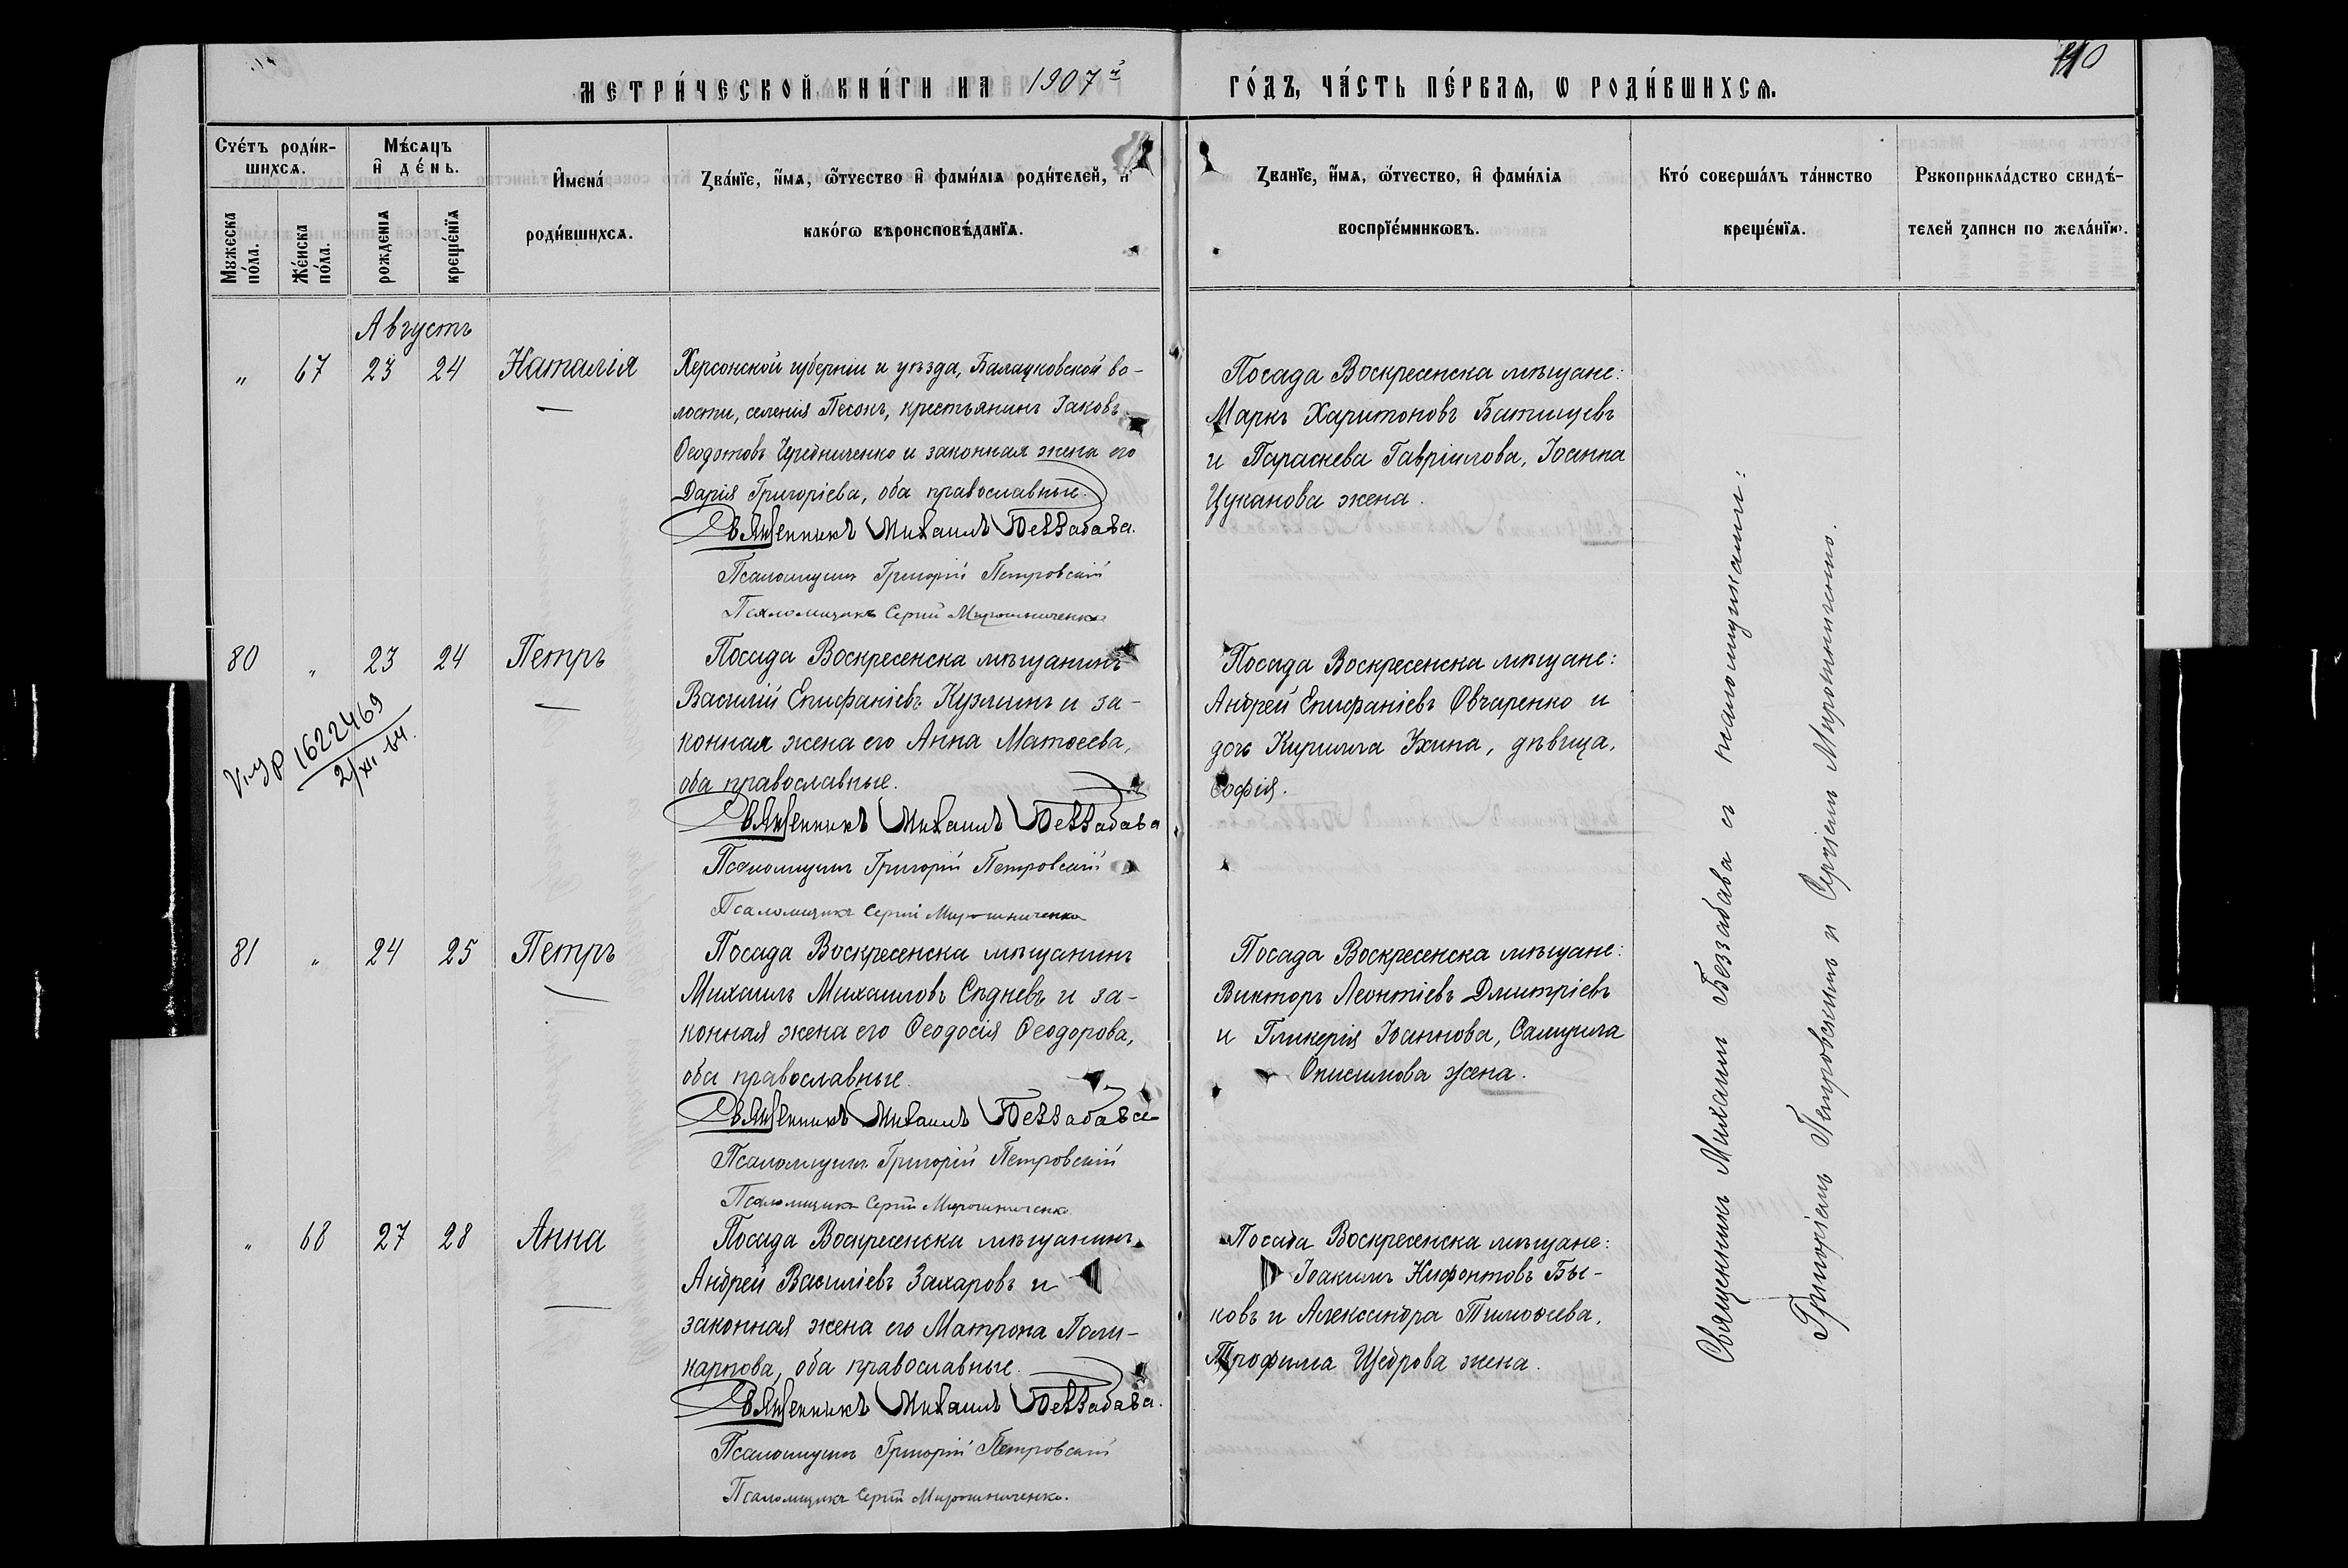 110
МЕТРИ́ЧЕСКОЙ КНИ́ГИ НА 1907й ГО́ДЪ, ЧА́СТЬ ПЕ́РВАѦ, Ѡ РОДИ́ВШИХСѦ.
Сче́тъ роди́в-
шихсѧ.
Мꙋжеска
по́ла.
Же́нска
по́ла.
Мѣ́сѧцъ
и҆ де́нь.
рожденїѧ
креще́нїѧ
И҆мена́
роди́вшихсѧ.
Зва́нїе, и҆́мѧ, ѻ҆́тчество и҆ фами́лїѧ роди́телей, и҆
како́гѡ вѣроисповѣ́данїѧ.
Званїе, и҆́мѧ, ѻ҆́тчество, и҆ фами́лїѧ
воспрїе́мникѡвъ.
Кто́ соверша́лъ та́инство
креще́нїѧ.
Рꙋкоприкла́дство свидѣ́-
телей записи по жела́нїю.
Августъ
„ 67 23 24 Наталія
Херсонской губерніи и уѣзда, Балацковской во-
лости, селенія Песокъ, крестьянинъ Іаковъ
Ѳеодотовъ Чередниченко и законная жена его
Дарія Григоріева, оба православные.
Священникъ Михаилъ Беззабава.
Псаломщикъ Григорій Петровскій
Псаломщикъ Сергій Мирошниченко
Посада Воскресенска мѣщане:
Маркъ Харитоновъ Батищевъ
и Параскева Гавріилова, Іоанна
Цуканова жена.
80 „ 23 24 Петръ
1622469
2/XI 64.
Посада Воскресенска мѣщанинъ
Василій Епифаніевъ Кузминъ и за-
конная жена его Анна Матѳеева,
оба православные.
Священникъ Михаилъ Беззабава
Псаломщикъ Григорій Петровскій
Псаломщикъ Сергій Мирошниченко
Посада Воскресенска мѣщане:
Андрей Епифаніевъ Овчаренко и
дочь Кирилла Ухина, дѣвица,
Софія.
81 „ 24 25 Петръ
Посада Воскресенска мѣщанинъ
Михаилъ Михаиловъ Сѣдневъ и за-
конная жена его Ѳеодосія Ѳеодорова,
оба православные.
Священникъ Михаилъ Беззабава
Псаломщикъ Григорій Петровскій
Псаломщикъ Сергій Мирошниченко
Посада Воскресенска мѣщане:
Викторъ Леонтіевъ Дмитріевъ
и Гликерія Іоаннова, Самуила
Онисимова жена.
„ 68 27 28 Анна
Посада Воскресенска мѣщанинъ
Андрей Василіевъ Захаровъ и
законная жена его Матрона Поли-
карпова, оба православные.
Священникъ Михаилъ Беззабава.
Псаломщикъ Григорій Петровскій
Псаломщикъ Сергій Мирошниченко.
Посада Воскресенска мѣщане:
Іоакимъ Нифонтовъ Бы-
ковъ и Александра Тимоѳеева,
Трофима Щедрова жена.
Священникъ Михаилъ Беззабава съ псаломщиками:
Григоріемъ Петровскимъ и Сергіемъ Мирошниченко.